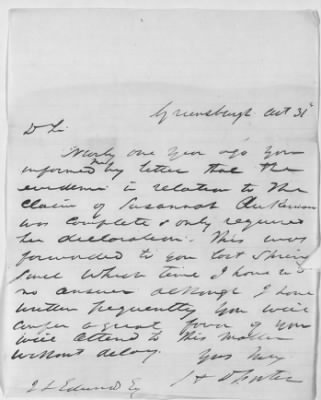 Greensburgh Oct 31st
D Sir
Nearly one year ago you
informed me by letter that the
evidence in relation to the
claim of Susannah
was complete & only required
her declaration. This was
forwarded to you last Spring
since which time I have had
no answer although I have
written frequently You will
confer a great favor if you
will attend to this matter
without delay.
Yours truly
J L Edwards Esq